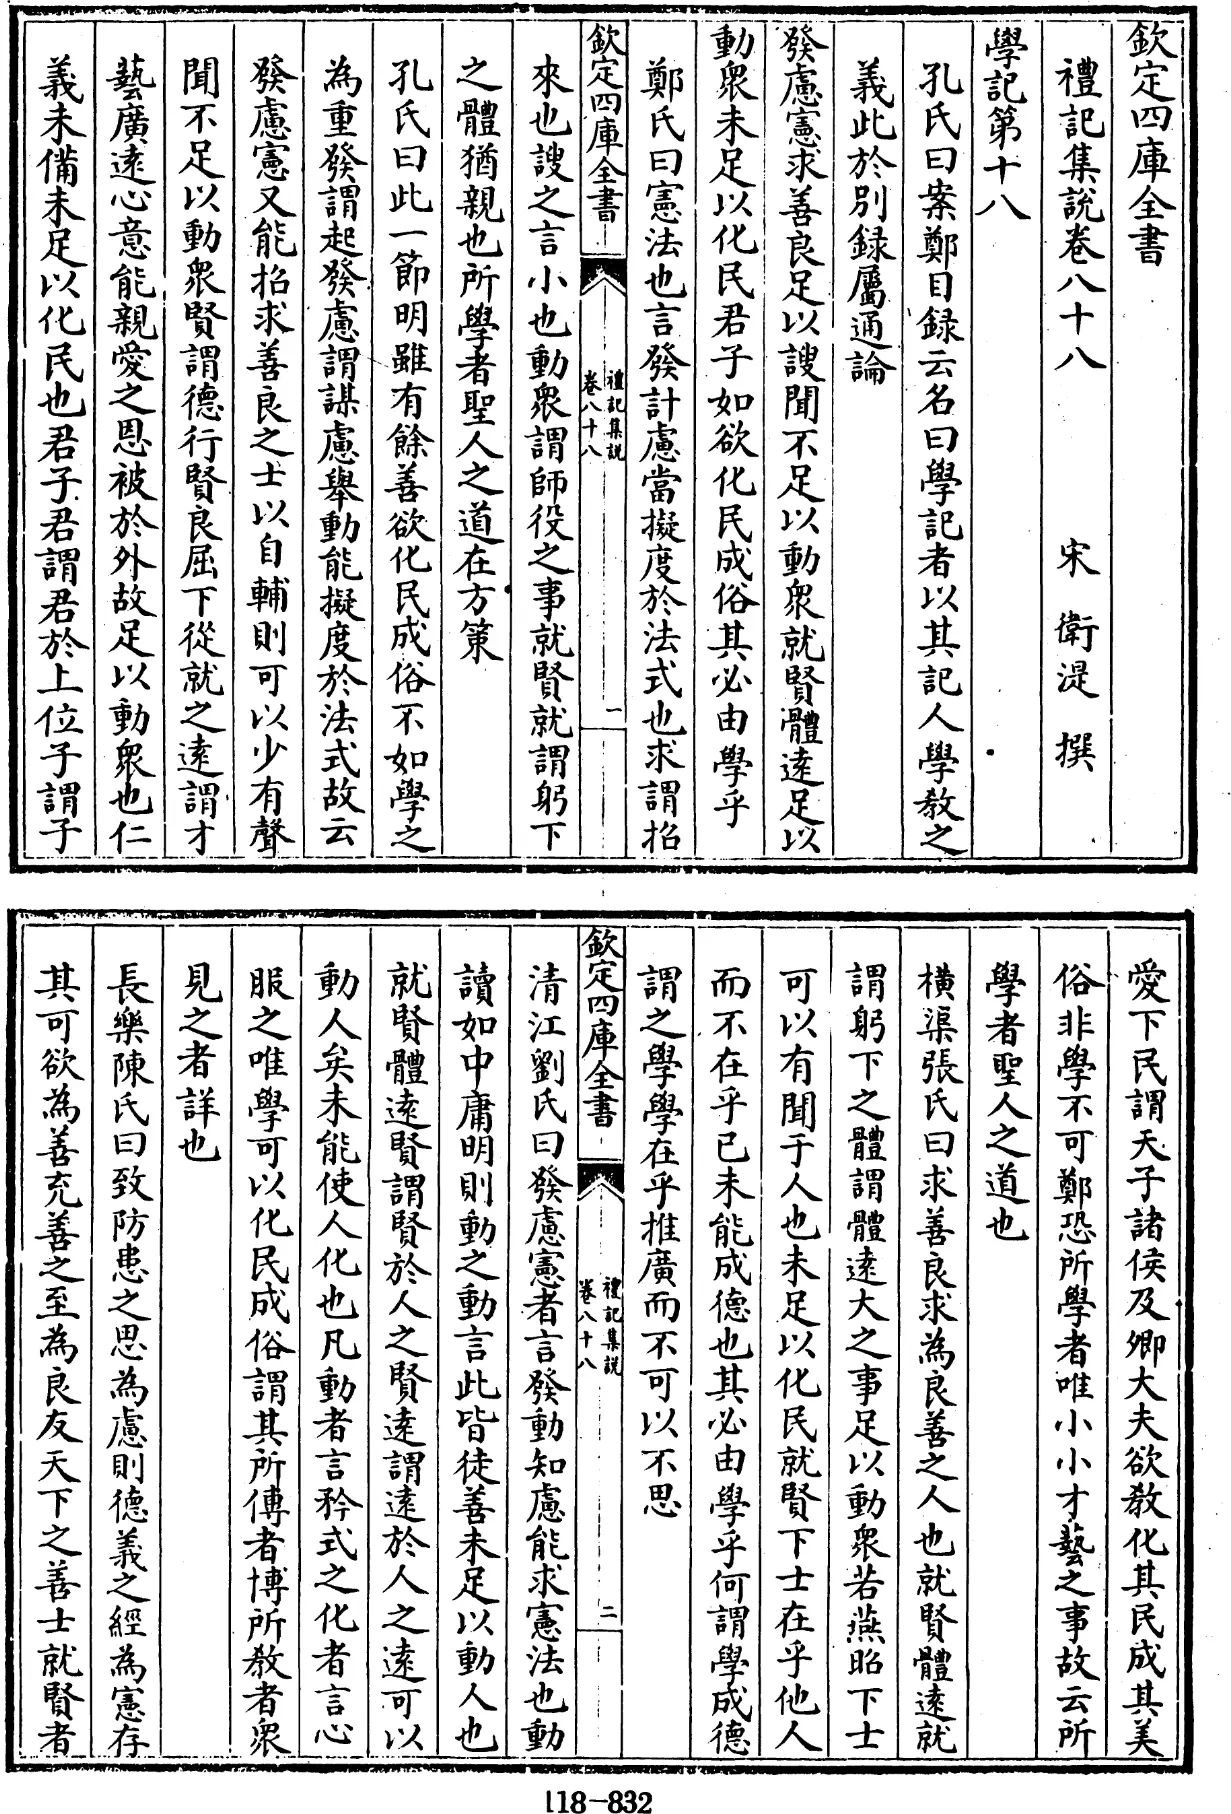 欽定四庫全書
禮記集說卷八十八　宋　衛湜　撰
學記第十八
孔氏曰案鄭目録云名曰學記者以其記人學敎之
義此於別録屬通論
發慮憲求善良足以謏聞不足以動衆就賢體逺足以
動衆未足以化民君子如欲化民成俗其必由學乎
鄭氏曰憲法也言發計慮當擬度於法式也求謂招
欽定四庫全書
禮記集說
卷八十八
一
來也謏之言小也動衆謂師役之事就賢就謂躬下
之體猶親也所學者聖人之道在方策
孔氏曰此一節明雖有餘善欲化民成俗不如學之
為重發謂起發慮謂謀慮舉動能擬度於法式故云
發慮憲又能招求善良之士以自輔則可以少有聲
聞不足以動衆賢謂德行賢良屈下從就之逺謂才
藝廣逺心意能親愛之恩被於外故足以動衆也仁
義未備未足以化民也君子君謂君於上位子謂子
愛下民謂天子諸侯及卿大夫欲敎化其民成其美
俗非學不可鄭恐所學者唯小小才藝之事故云所
學者聖人之道也
橫渠張氏曰求善良求為良善之人也就賢體逺就
謂躬下之體謂體逺大之事足以動衆若燕昭下士
可以有聞于人也未足以化民就賢下士在乎他人
而不在乎已未能成德也其必由學乎何謂學成德
謂之學學在乎推廣而不可以不思
欽定四庫全書
禮記集說
卷八十八
二
清江劉氏曰發慮憲者言發動知慮能求憲法也動
讀如中庸明則動之動言此皆徒善未足以動人也
就賢體逺賢謂賢於人之賢逺謂逺於人之逺可以
動人矣未能使人化也凡動者言矜式之化者言心
服之唯學可以化民成俗謂其所傳者博所敎者衆
見之者詳也
長樂陳氏曰致防患之思為慮則德義之經為憲存
其可欲為善充善之至為良友天下之善士就賢者
118-832